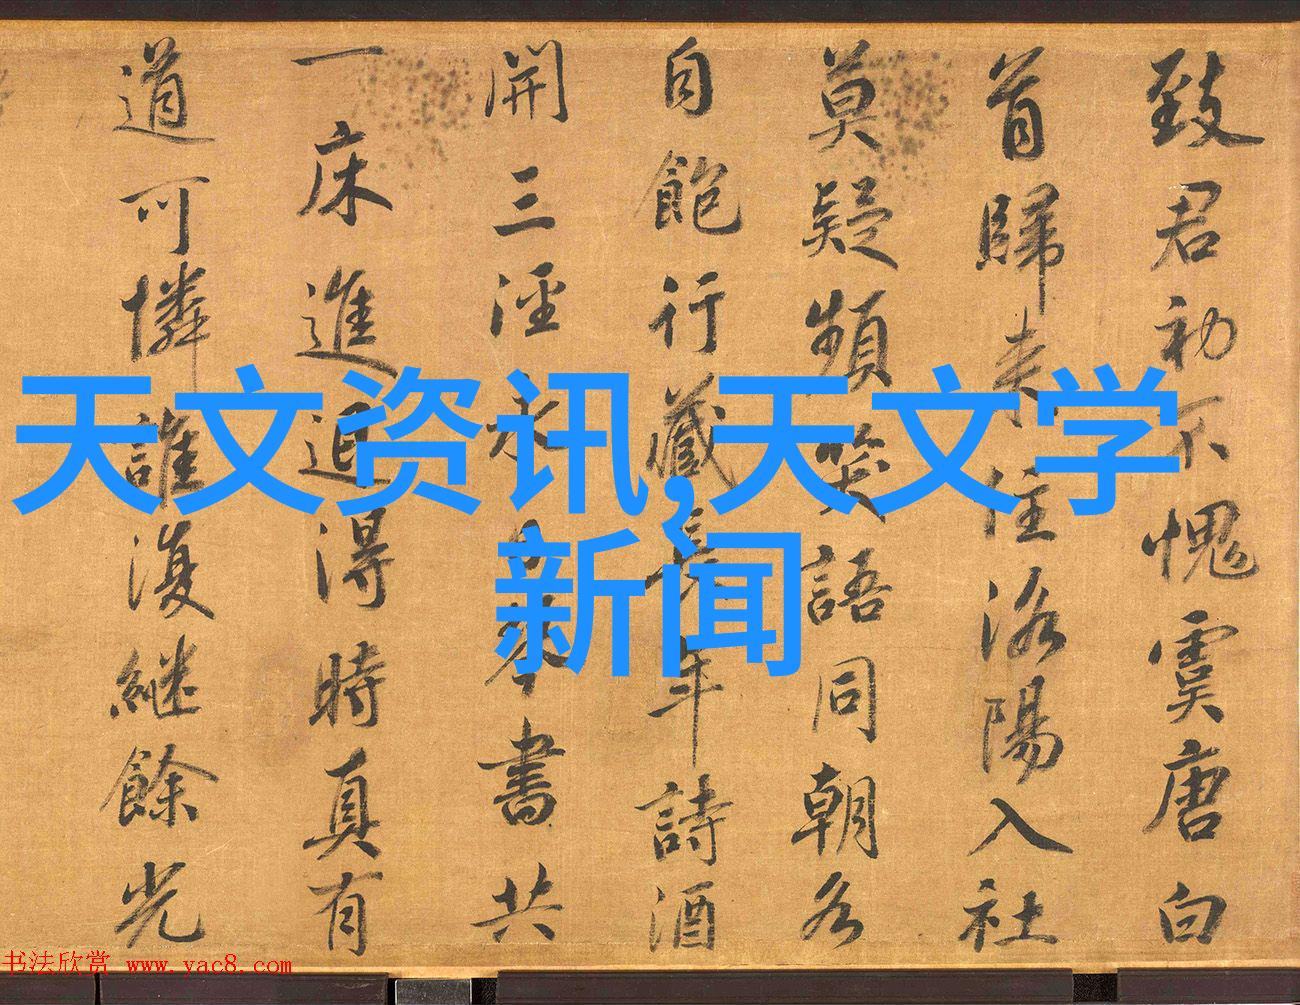 致君初不愧虞唐白
首歸来住洛陽入社
莫疑頻笑語同朝各
自飽行藏長年詩酒
開三淫永日琴書共
一床進退得時真有
道可憐誰復継餘光
天文资讯,天文学
新闻
书法欣赏 www.yac8.com